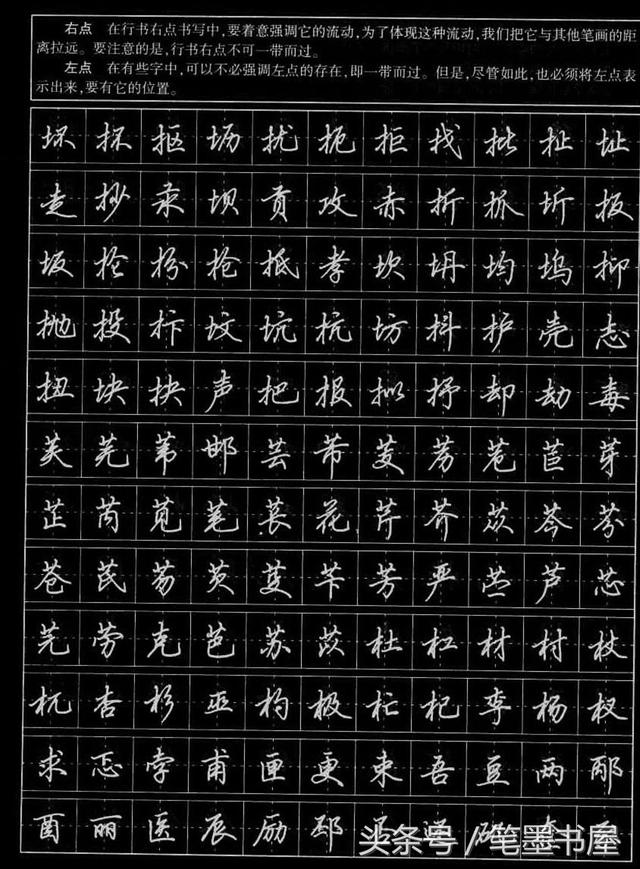 右点 在行书右点书写中,要着意强调它的流动,为了体现这种流动,我们把它与其他笔画的距
离拉远。要注意的是,行书右点不可一带而过。
左点 在有些字中,可以不必强调左点的存在,即一带而过。但是,尽管如此,也必须将左点表
示出来,要有它的位置。
坏 抠 坜 扰 扼 拒 找 批 扯 址
走 抄 汞 坝 贡 攻 赤 折 抓 圻 扳
坂 抡 扮 抢 抵 孝 坎 坍 均 坞 抑
抛 投 抃 坟 坑 抗 坊 抖 护 壳 志
扭 块 抉 声 把 报 拟 抒 却 劫 毒
芙 芜 苇 邯 芸 芾 芰 苈 苊 苣 芽
芷 芮 苋 芼 苌 花 芹 芥 苁 芩 芬
苍 芪 芴 芡 芟 苄 芳 严 苎 芦 芯
芫 劳 克 芭 苏 苡 杜 杠 材 村 杖
杌 杏 杉 巫 杓 极 杧 杞 李 杨 杈
求 忑 孛 甫 匣 更 束 吾 豆 两 邴
酉 丽 医 辰 励 邳
头条号 / 笔墨书屋